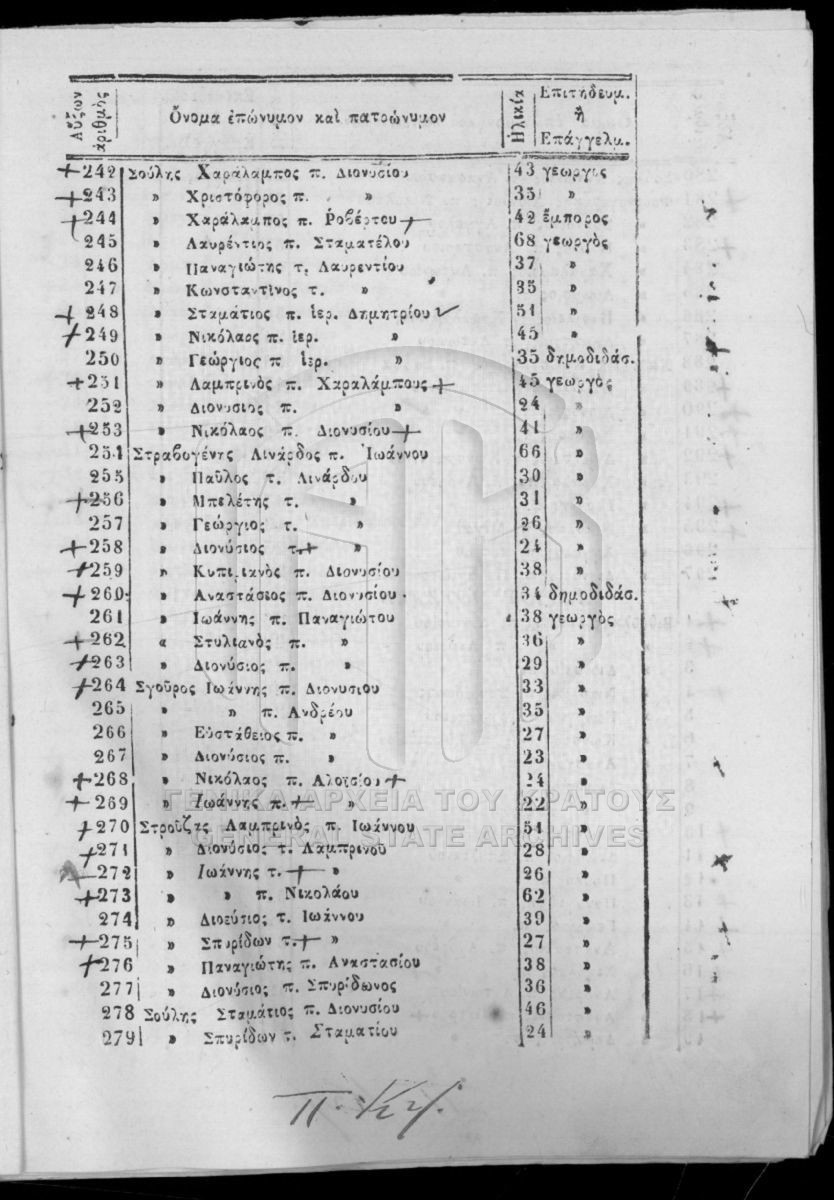 Αὔξων ἀριθμὸς Ὄνομα ἐπώνυμον καὶ πατρώνυμον Ἡλικία Ἐπιτήδευμ. ἢ Ἐπάγγελμ.
+242 Σούλης Χαράλαμπος π. Διονυσίου 43 γεωργὸς
+243 » Χριστόφορος π. » 35 »
+244 » Χαράλαμπος π. Ῥοβέρτου + 42 ἔμπορος
245 » Λαυρέντιος π. Σταματέλου 68 γεωργὸς
246 » Παναγιώτης τ. Λαυρεντίου 37 »
247 » Κωνσταντῖνος τ. » 35 »
+248 » Σταμάτιος π. ἱερ. Δημητρίου ✓ 51 »
+249 » Νικόλαος π. ἱερ. » 45 »
250 » Γεώργιος π ἱερ. » 35 δημοδιδάσ.
+251 » Λαμπρινὸς π. Χαραλάμπους + 45 γεωργὸς
252 » Διονυσιος π. » 24 »
+253 » Νικόλαος π. Διονυσίου + 41 »
254 Στραβογένης Λινάρδος π. Ἰωάννου 66 »
255 » Παῦλος τ. Λινάρδου 30 »
+256 » Μπελέτης τ. » 31 »
257 » Γεώργιος τ. » 26 »
+258 » Διονύσιος τ. + » 24 »
+259 » Κυπριανὸς π. Διονυσίου 38 »
+260 » Αναστάσιος π. Διονυσίου 34 δημοδιδάσ.
261 » Ἰωάννης π. Παναγιώτου 38 γεωργὸς
+262 « Στυλιανὸς π. » 36 »
+263 » Διονύσιος π. » 29 »
+264 Σγοῦρος Ἰωάννης π. Διονυσιου 33 »
265 » » π. Ἀνδρέου 35 »
266 » Εὐστάθειος π. » 27 »
267 » Διονύσιος π. » 23 »
+268 » Νικόλαος π. Αλοϊσίου + 24 »
+269 » Ἰωάννης π. + » 22 »
+270 Στροῦζας Λαμπρινὸς π. Ἰωάννου 51 »
+271 » Διονύσιος τ. Λαμπρινοῦ 28 »
+272 » Ἰωάννης τ. + » 26 »
+273 » » π. Νικολάου 62 »
274 » Διονύσιος τ. Ἰωάννου 39 »
+275 » Σπυρίδων τ. + » 27 »
+276 » Παναγιώτης π. Αναστασίου 38 »
277 » Διονύσιος π. Σπυρίδωνος 36 »
278 Σούλης Σταμάτιος π. Διονυσίου 46 »
279 » Σπυρίδων τ. Σταματίου 24 »
ΓΕΝΙΚΑ ΑΡΧΕΙΑ ΤΟΥ ΚΡΑΤΟΥΣ
GENERAL STATE ARCHIVES